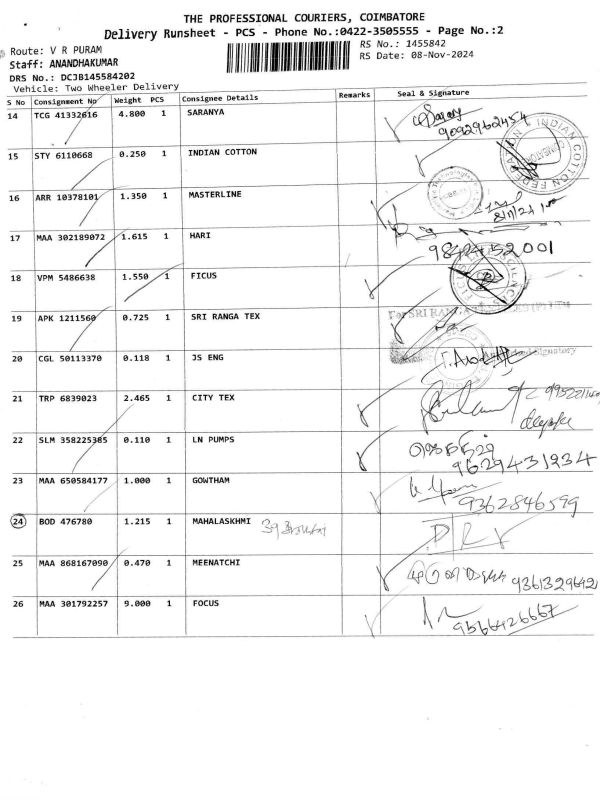 THE PROFESSIONAL COURIERS, COIMBATORE
Delivery Runsheet - PCS - Phone No.:0422-3505555 - Page No.:2
Route: V R PURAM
RS No.: 1455842
Staff: ANANDHAKUMAR
RS Date: 08-Nov-2024
DRS No.: DCJB145584202
Vehicle: Two Wheeler Delivery
S No Consignment No Weight PCS Consignee Details Remarks Seal & Signature
14 TCG 41332616 4.800 1 SARANYA
9092962454
15 STY 6110668 0.250 1 INDIAN COTTON
INDIAN COTTON FEDERATION
16 ARR 10378101 1.350 1 MASTERLINE
17 MAA 302189072 1.615 1 HARI
9842452001
18 VPM 5486638 1.550 1 FICUS
19 APK 1211560 0.725 1 SRI RANGA TEX
For SRI RANGA
20 CGL 50113370 0.118 1 JS ENG
Signatory
21 TRP 6839023 2.465 1 CITY TEX
22 SLM 358225385 0.110 1 LN PUMPS
9629431234
23 MAA 650584177 1.000 1 GOWTHAM
9362846599
24 BOD 476780 1.215 1 MAHALASKHMI
25 MAA 868167090 0.470 1 MEENATCHI
9361329642
26 MAA 301792257 9.000 1 FOCUS
9566426667